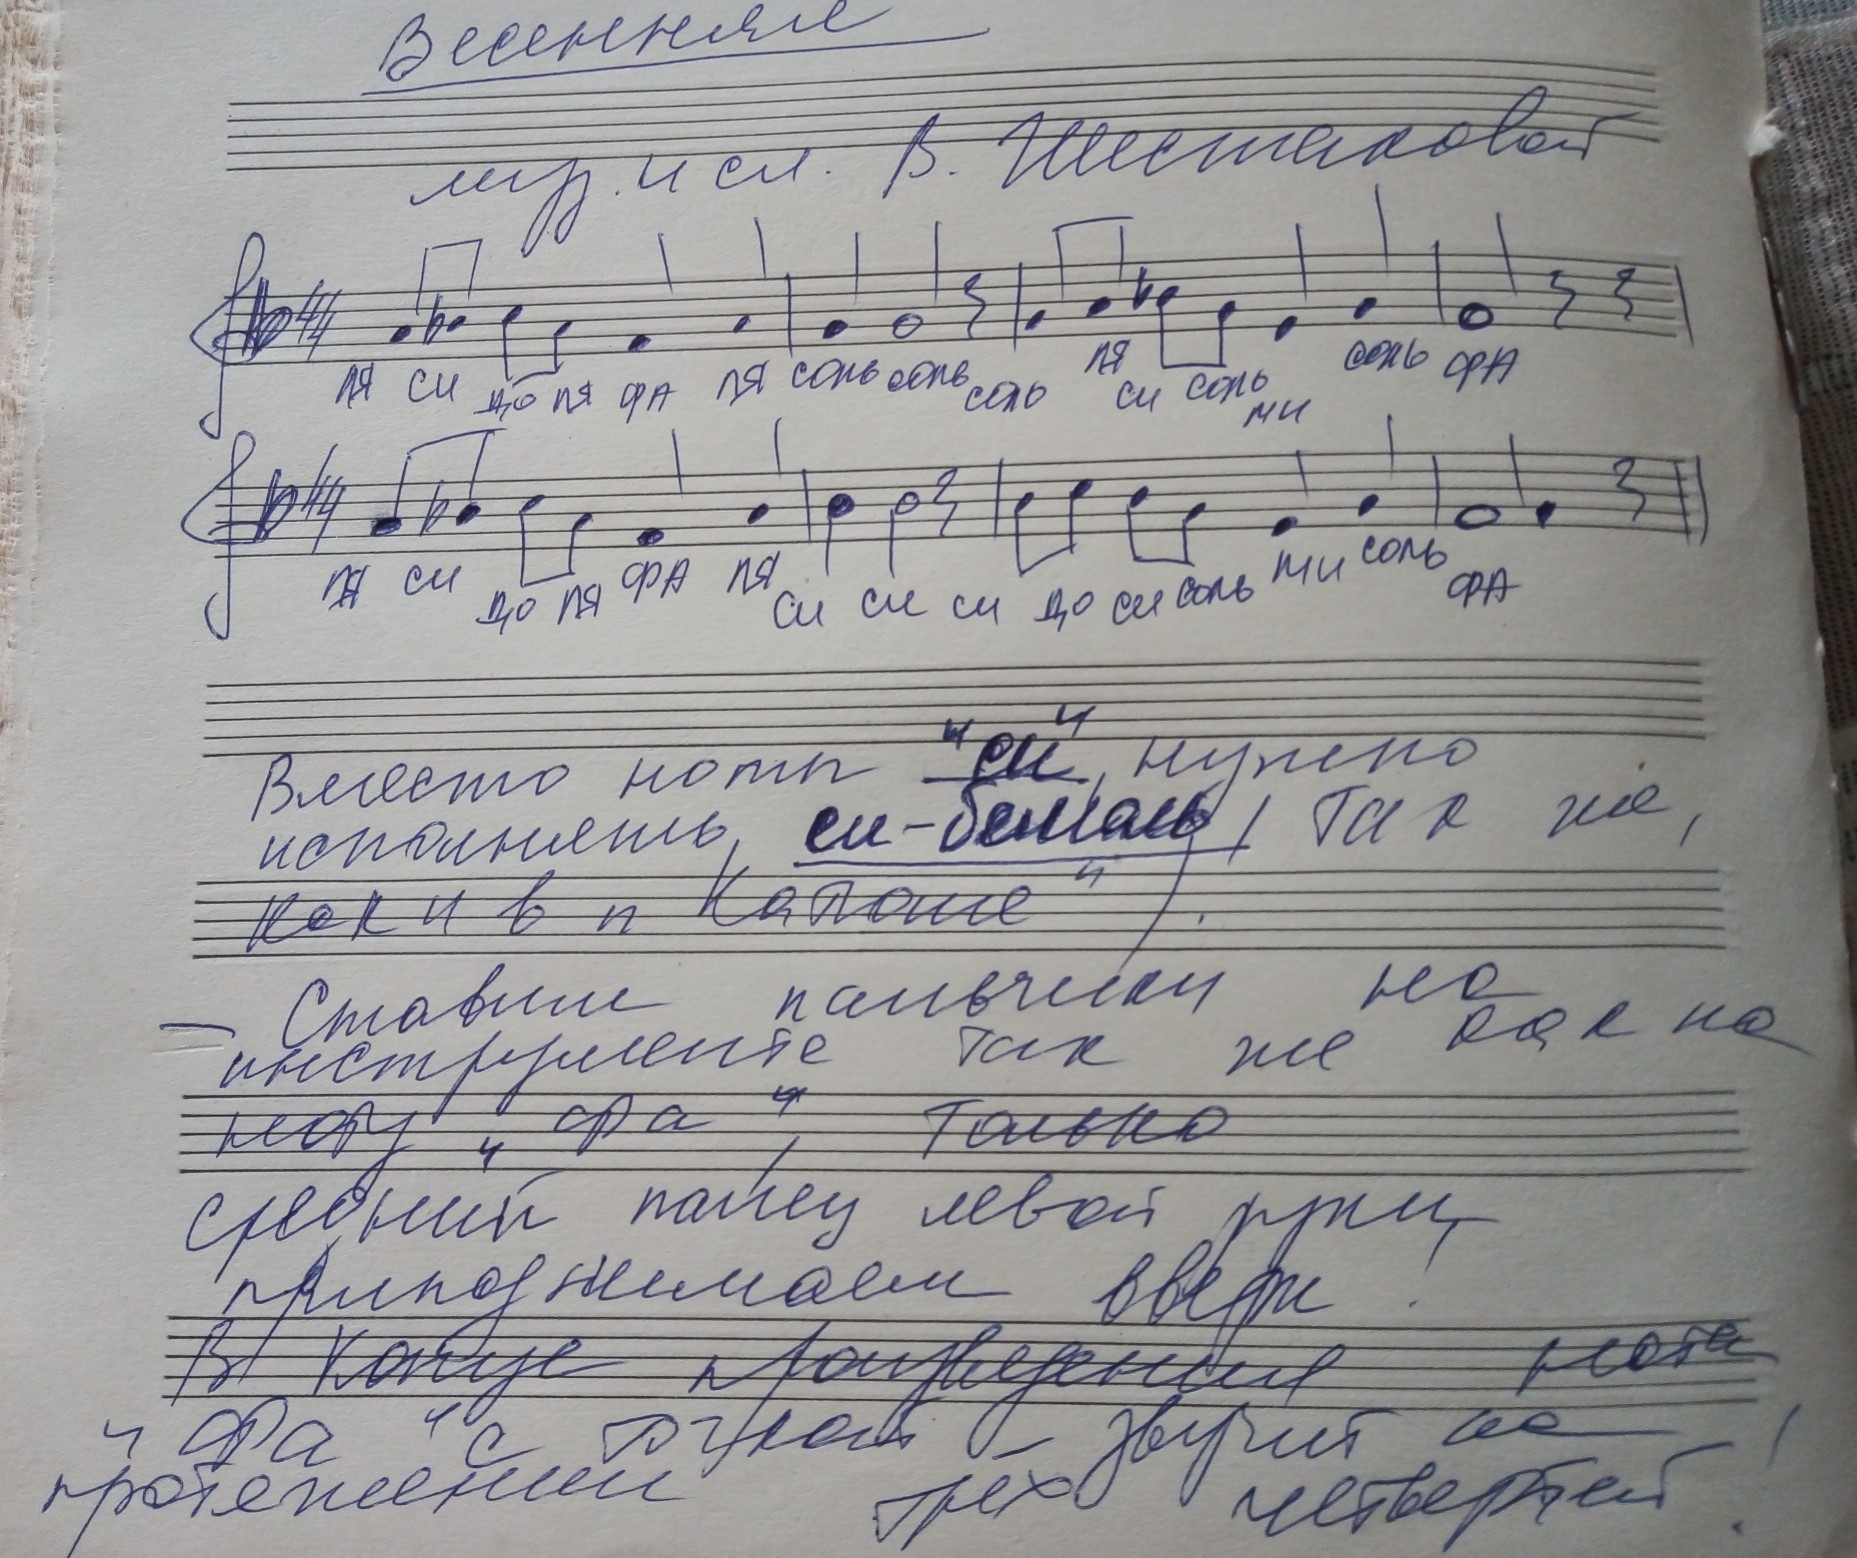 Весенняя
муз. и сл. В. Шестаковой
44
ля си до ля фа ля соль соль соль ля си соль ми соль фа
44
ля си до ля фа ля си си си до си соль ми соль фа
Вместо ноты "си", нужно
исполнять, си-бемоль / Так же,
как и в „Капоше" / .
— Ставим пальчики на
инструменте так же как на
ноту „фа", только
средний палец левой руки,
приподнимаем вверх!
В конце произведения нота
„Фа" с точкой – звучит на
протяжении трёх четвертей!